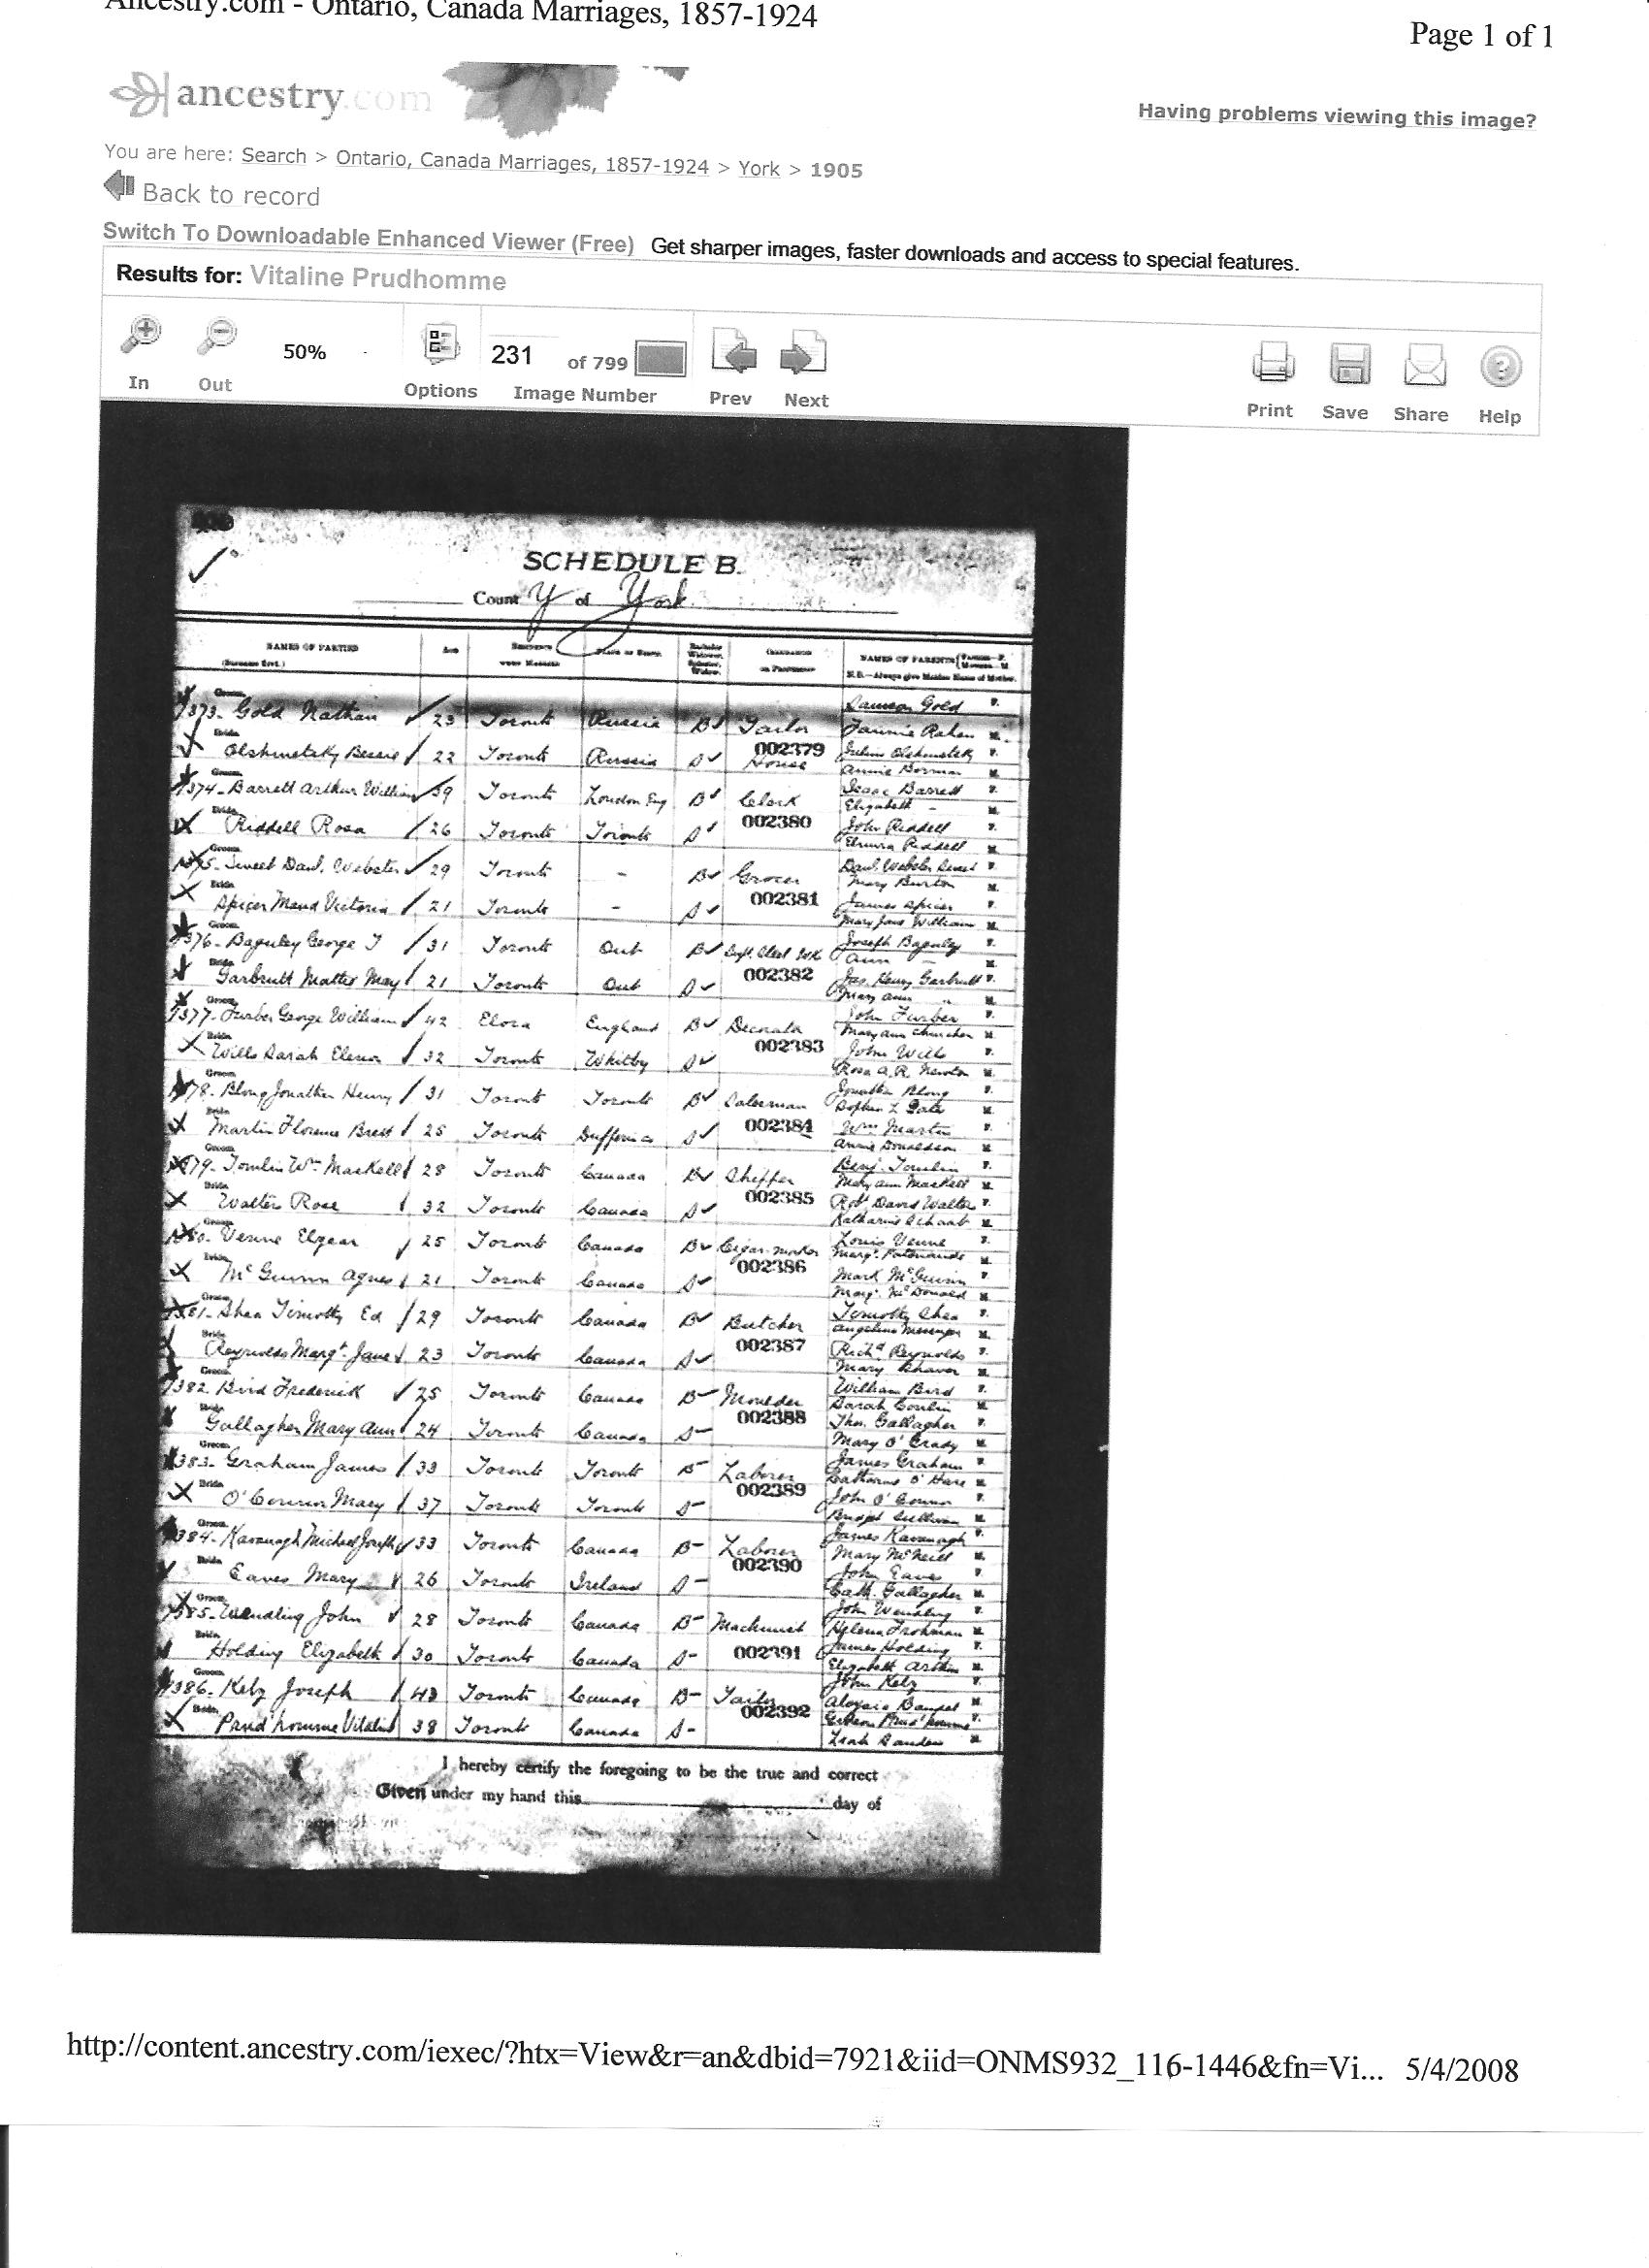 Ancestry.com - Ontario, Canada Marriages, 1857-1924
Page 1 of 1
ancestry.com
Having problems viewing this image?
You are here: Search > Ontario, Canada Marriages, 1857-1924 > York > 1905
Back to record
Switch To Downloadable Enhanced Viewer (Free) Get sharper images, faster downloads and access to special features.
Results for: Vitaline Prudhomme
50% 231 of 799
In Out Options Image Number Prev Next Print Save Share Help
SCHEDULE B.
County of York
NAMES OF PARTIES NAMES OF PARENTS
(Surname first.) N.B.—Always give Maiden Name of Mother.
Groom Gold F.
7373- Gold Nathan 23 Toronto Russia B Tailor Fannie M.
Bride 002379 F.
Bessie 22 Toronto Russia S House Annie M.
Groom Isaac Barrett F.
7374- Barrett Arthur William 39 Toronto London Eng B Clerk Elizabeth - M.
Bride 002380 John Riddell F.
Riddell Rosa 26 Toronto Toronto S Riddell M.
Groom Webster Sweet F.
Sweet Danl. Webster 29 Toronto - B Grocer Mary Burton M.
Bride 002381 James Spicer F.
Spicer Maud Victoria 21 Toronto - S Mary Jane William M.
Groom Joseph Baguley F.
7376- Baguley George J 31 Toronto Ont B Ann - M.
Bride 002382 Jas. Henry Garbutt F.
Garbutt May 21 Toronto Ont S Mary Ann M.
Groom John Furber F.
7377- Furber George William 42 Elora England B Mary Ann M.
Bride 002383 John Wills F.
Wills Sarah 32 Toronto Whitby S Rosa A.R. Newton M.
Groom Jonathan Blong F.
78- Blong Jonathan Henry 31 Toronto Toronto B Salesman M.
Bride 002384 Wm Martin F.
Martin Florence 25 Toronto Dufferin S Annie Donaldson M.
Groom Benj. Tomlin F.
79- Tomlin Wm 28 Toronto Canada B Mary Ann M.
Bride 002385 Robt David Walter F.
Walter Rose 32 Toronto Canada S Katharine Schaab M.
Groom Louis Venne F.
80- Venne Elzear 25 Toronto Canada B Cigar-maker Margt. M.
Bride 002386 Mark McGuinn F.
McGuinn Agnes 21 Toronto Canada S Margt. McDonald M.
Groom Timothy Shea F.
7381- Shea Timothy Ed 29 Toronto Canada B Butcher Angelina M.
Bride 002387 Richd Reynolds F.
Reynolds Margt. Jane 23 Toronto Canada S Mary M.
Groom William Bird F.
7382 Bird Frederick 25 Toronto Canada B Moulder Sarah M.
Bride 002388 Thos. Gallagher F.
Gallagher Mary Ann 24 Toronto Canada S Mary O'Grady M.
Groom James Graham F.
7383- Graham James 33 Toronto Toronto B Laborer Catharine O'Hare M.
Bride 002389 John O'Connor F.
O'Connor Mary 37 Toronto Toronto S Bridget Sullivan M.
Groom James Kavanagh F.
7384- Kavanagh Michael Joseph 33 Toronto Canada B Laborer Mary McNeill M.
Bride 002390 John Eaves F.
Eaves Mary 26 Toronto Ireland S Cath. Gallagher M.
Groom John Wendling F.
7385- Wendling John 28 Toronto Canada B Machinist Helena Frohman M.
Bride 002391 James Holding F.
Holding Elizabeth 30 Toronto Canada S Elizabeth M.
Groom John Kelz F.
7386- Kelz Joseph 43 Toronto Canada B Tailor M.
Bride 002392 Prud'homme F.
Prud'homme Vitalin 38 Toronto Canada S Leah M.
I hereby certify the foregoing to be the true and correct
Given under my hand this day of
http://content.ancestry.com/iexec/?htx=View&r=an&dbid=7921&iid=ONMS932_116-1446&fn=Vi... 5/4/2008